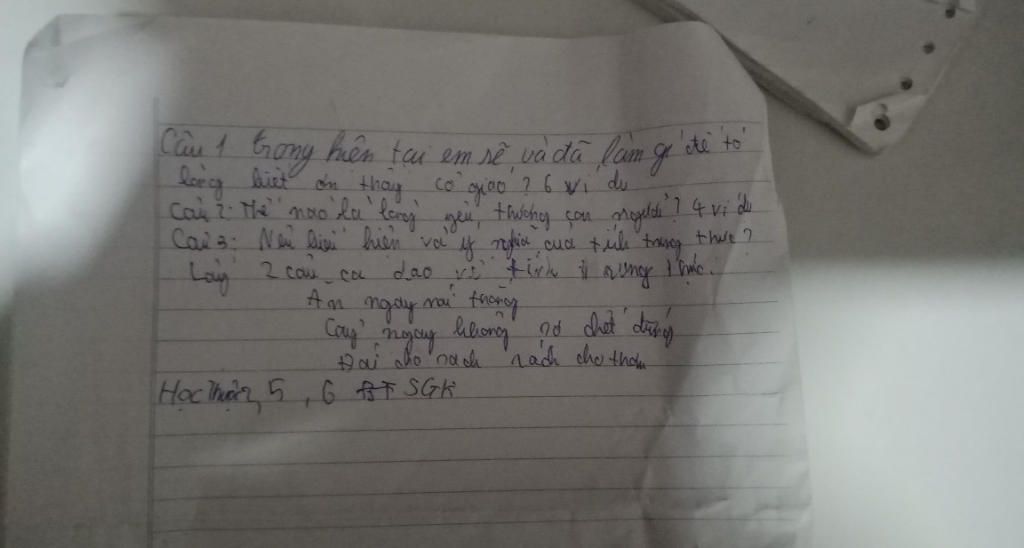 Câu 1 trong hiện tại em sẽ và đã làm gì để tỏ
lòng biết ơn thầy cô giáo? 6 ví dụ
Câu 2: Thế nào là lòng yêu thương con người? 4 ví dụ
Câu 3: Nêu biểu hiện và ý nghĩa của tính trung thực?
Lấy 2 câu ca dao về tính trung thực.
Ăn ngay nói thẳng
Cây ngay không sợ chết đứng
Đói cho sạch rách cho thơm
Học thuộc, 5, 6 SGK